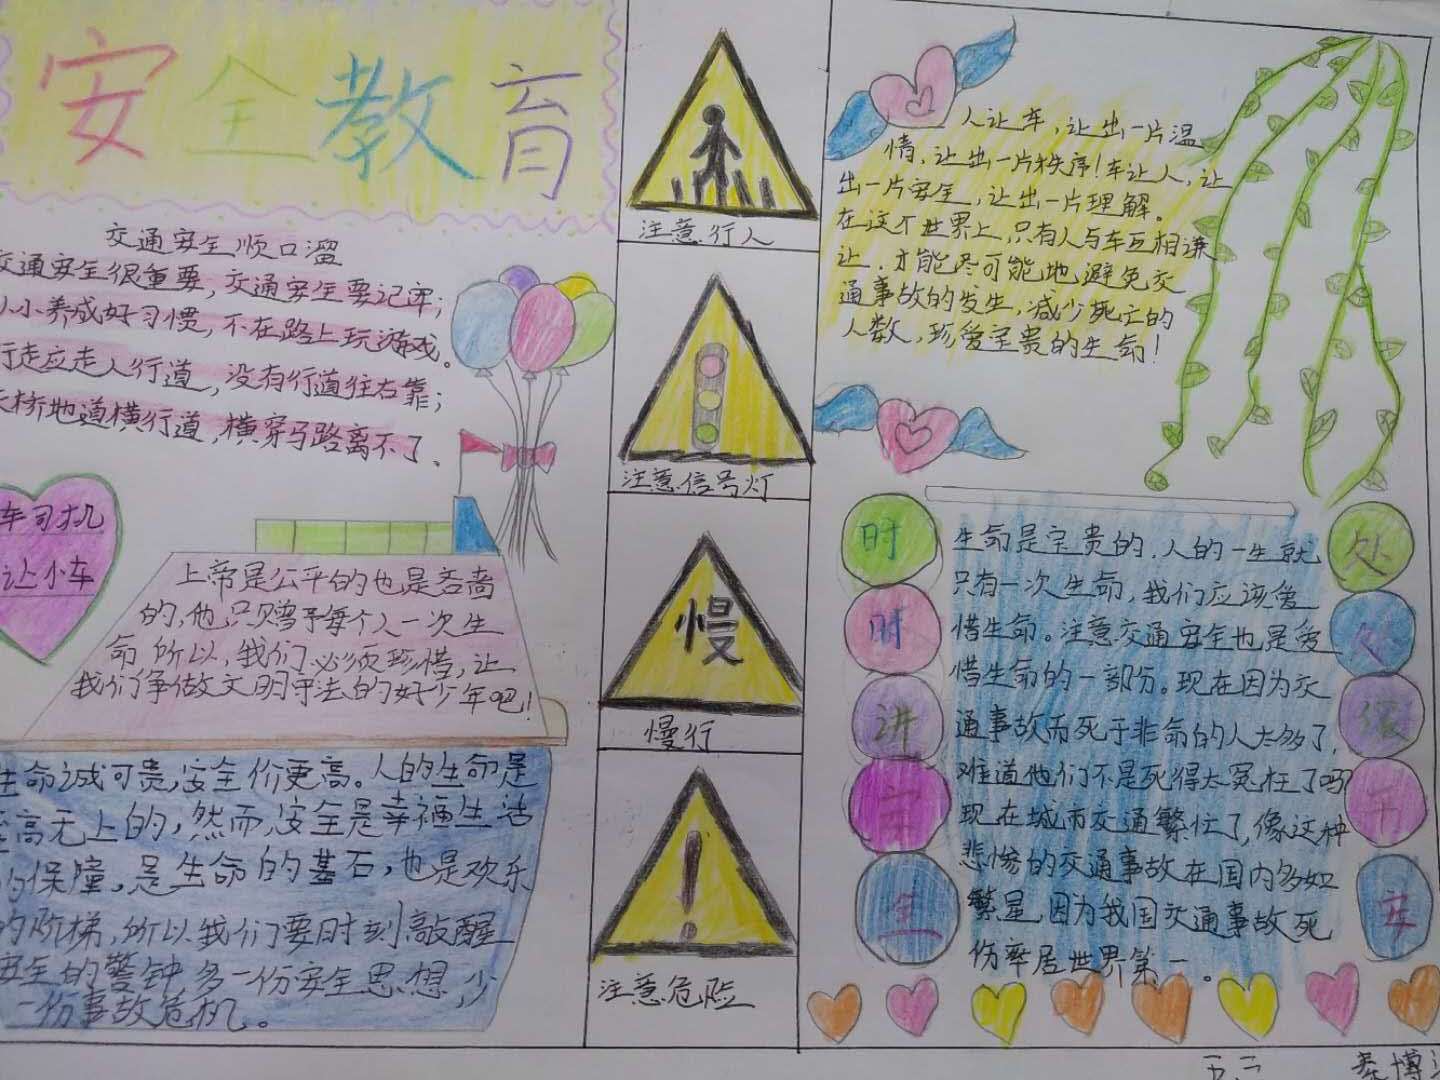 安全教育
交通安全顺口溜
交通安全很重要,交通安全要记牢;
从小养成好习惯,不在路上玩游戏。
行走应走人行道,没有行道往右靠;
天桥地道横行道,横穿马路离不了、
车司机
让小车
上帝是公平的也是吝啬
的,他只赠予每个人一次生
命所以,我们必须珍惜,让
我们争做文明守法的好少年吧!
生命诚可贵,安全价更高。人的生命是
至高无上的,然而,安全是幸福生活
的保障,是生命的基石,也是欢乐
的阶梯,所以我们要时刻敲醒
安全的警钟,多一份安全思想,少
一份事故危机。
注意行人
注意信号灯
慢
慢行
!
注意危险
人让车,让出一片温
情,让出一片秩序!车让人,让
出一片安全,让出一片理解。
在这个世界上,只有人与车互相谦
让,才能尽可能地避免交
通事故的发生,减少死亡的
人数,珍爱宝贵的生命!
时
时
讲
安
全
生命是宝贵的,人的一生就
只有一次生命,我们应该爱
惜生命。注意交通安全也是爱
惜生命的一部份。现在因为交
通事故而死于非命的人太多了,
难道他们不是死得太冤枉了吗
现在城市交通繁忙了,像这种
悲惨的交通事故在国内多如
繁星,因为我国交通事故死
伤率居世界第一。
处
处
保
平
安
五.二
秦博